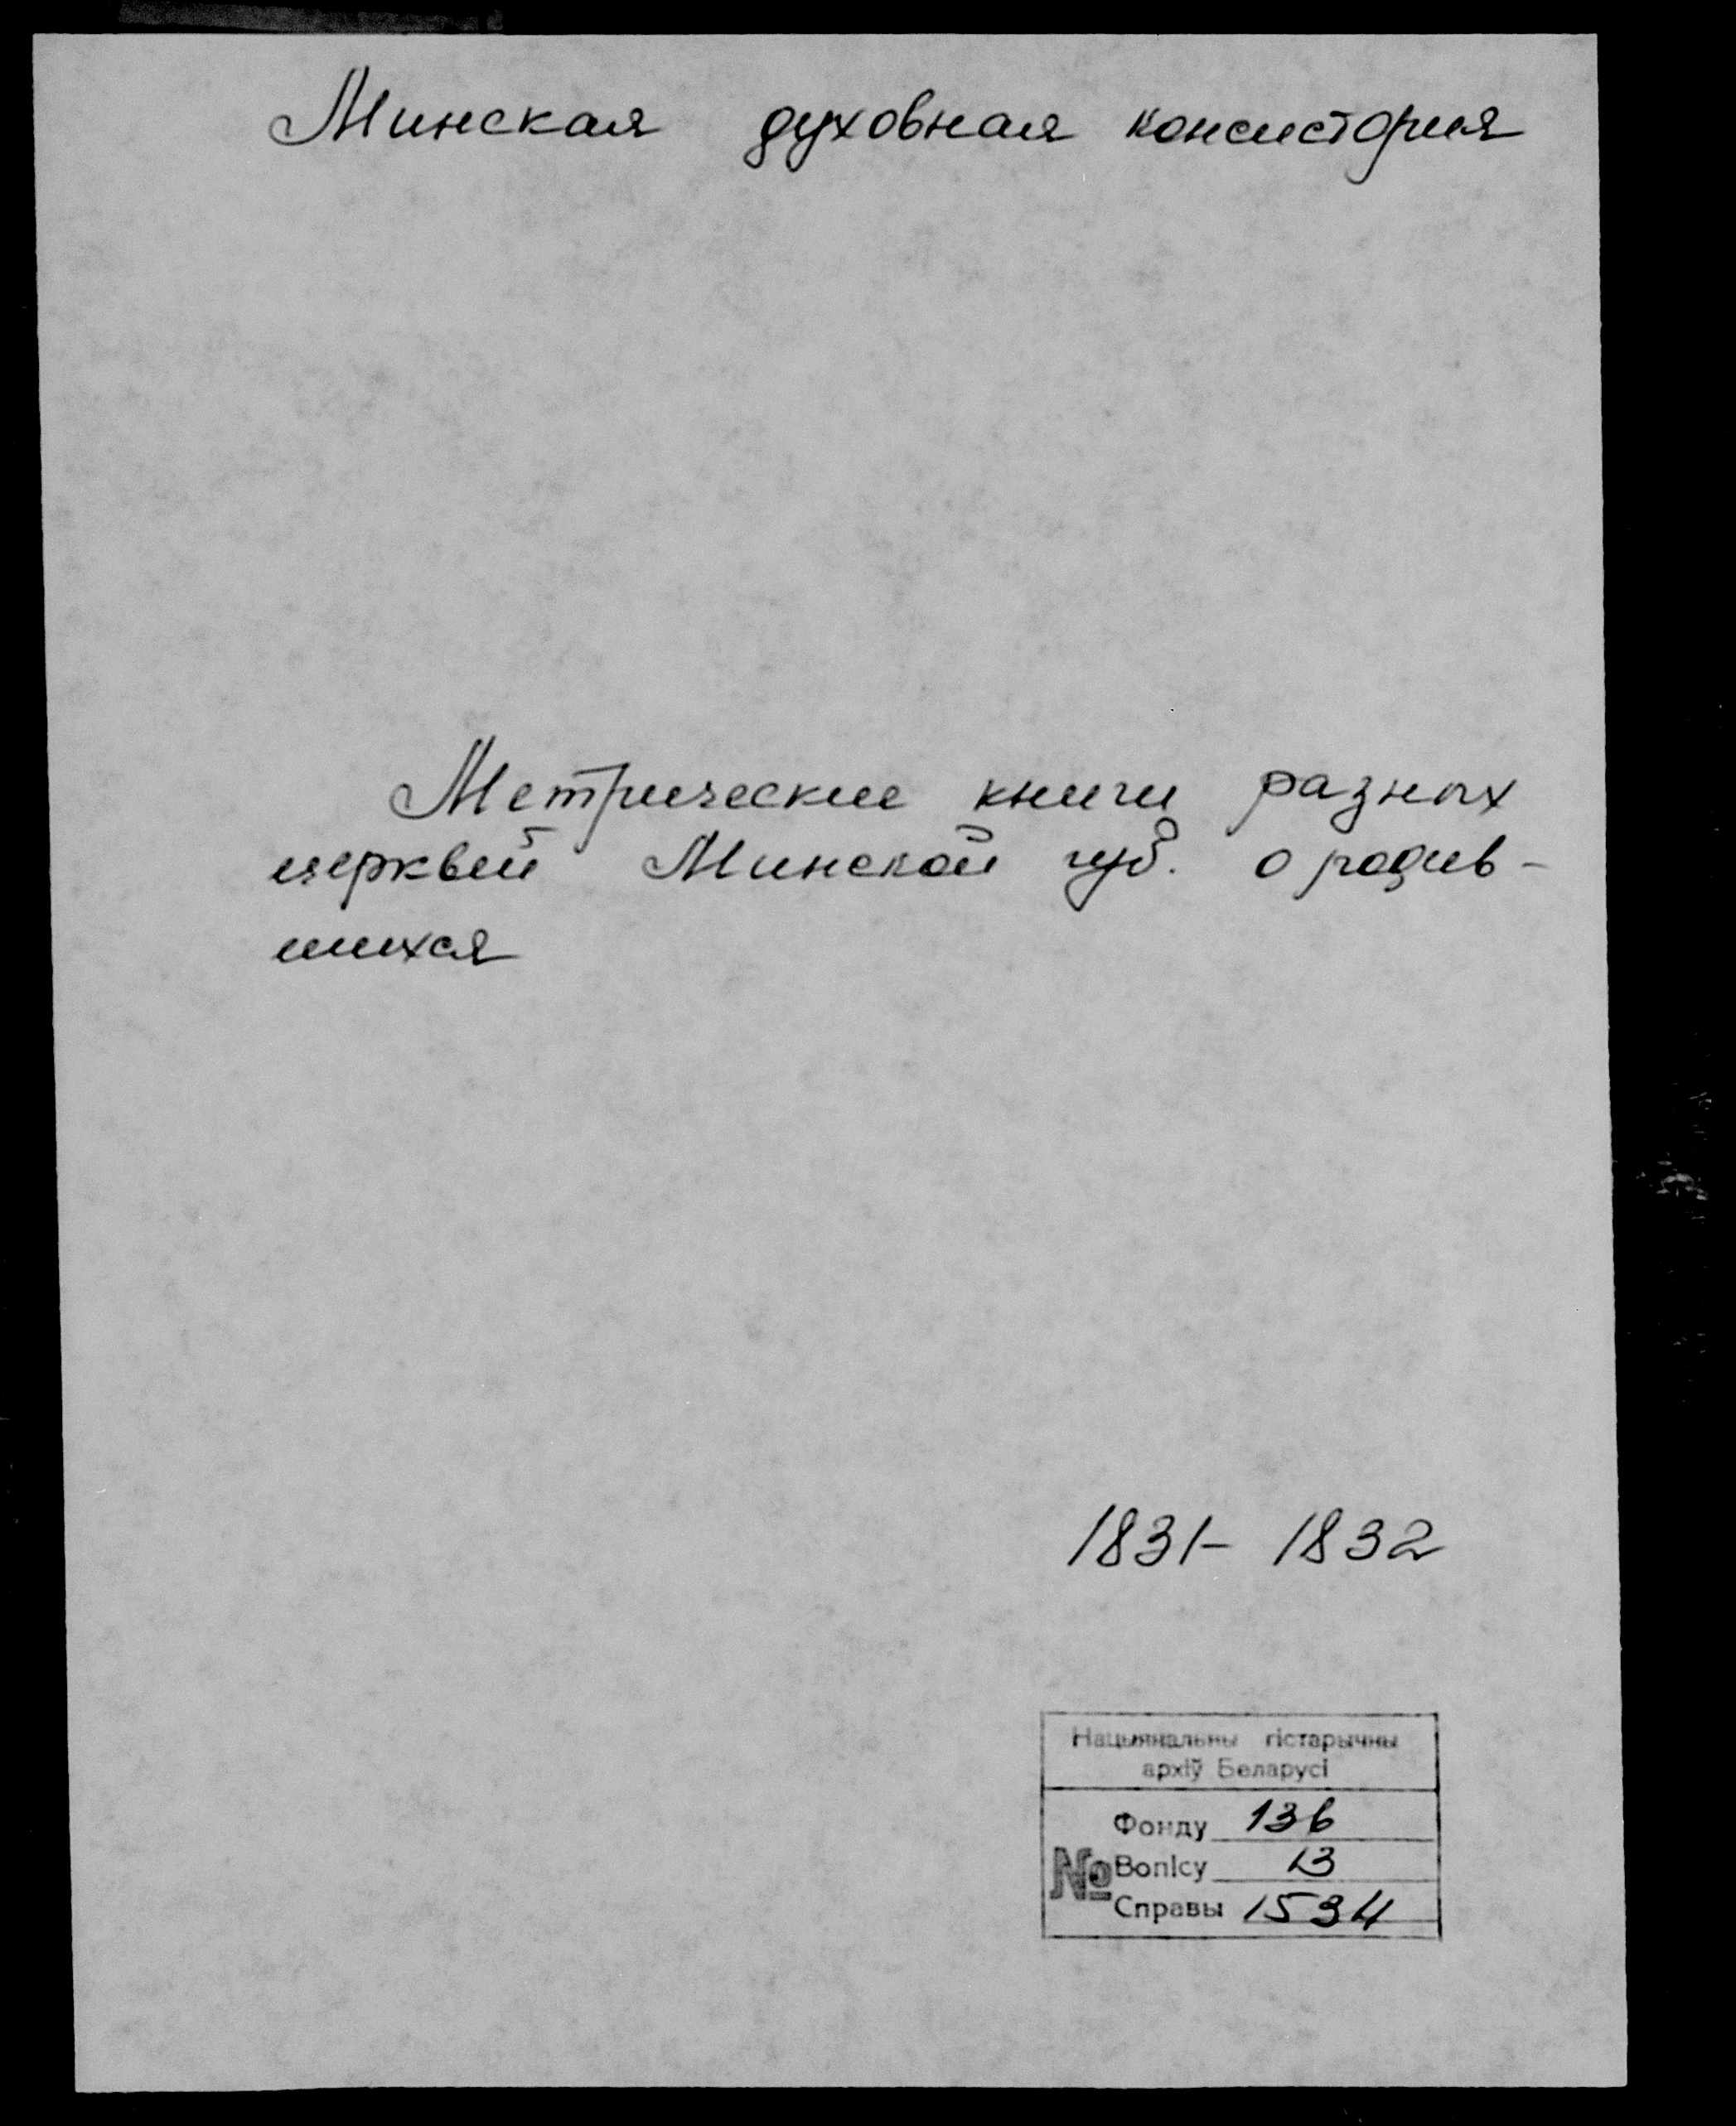 Минская духовная консистория
Метрические книги разных
церквей Минской губ. о родив-
шихся
1831- 1832
Нацыянальны гістарычны
архіў Беларусі
Фонду 136
№ Вопісу 13
Справы 1534